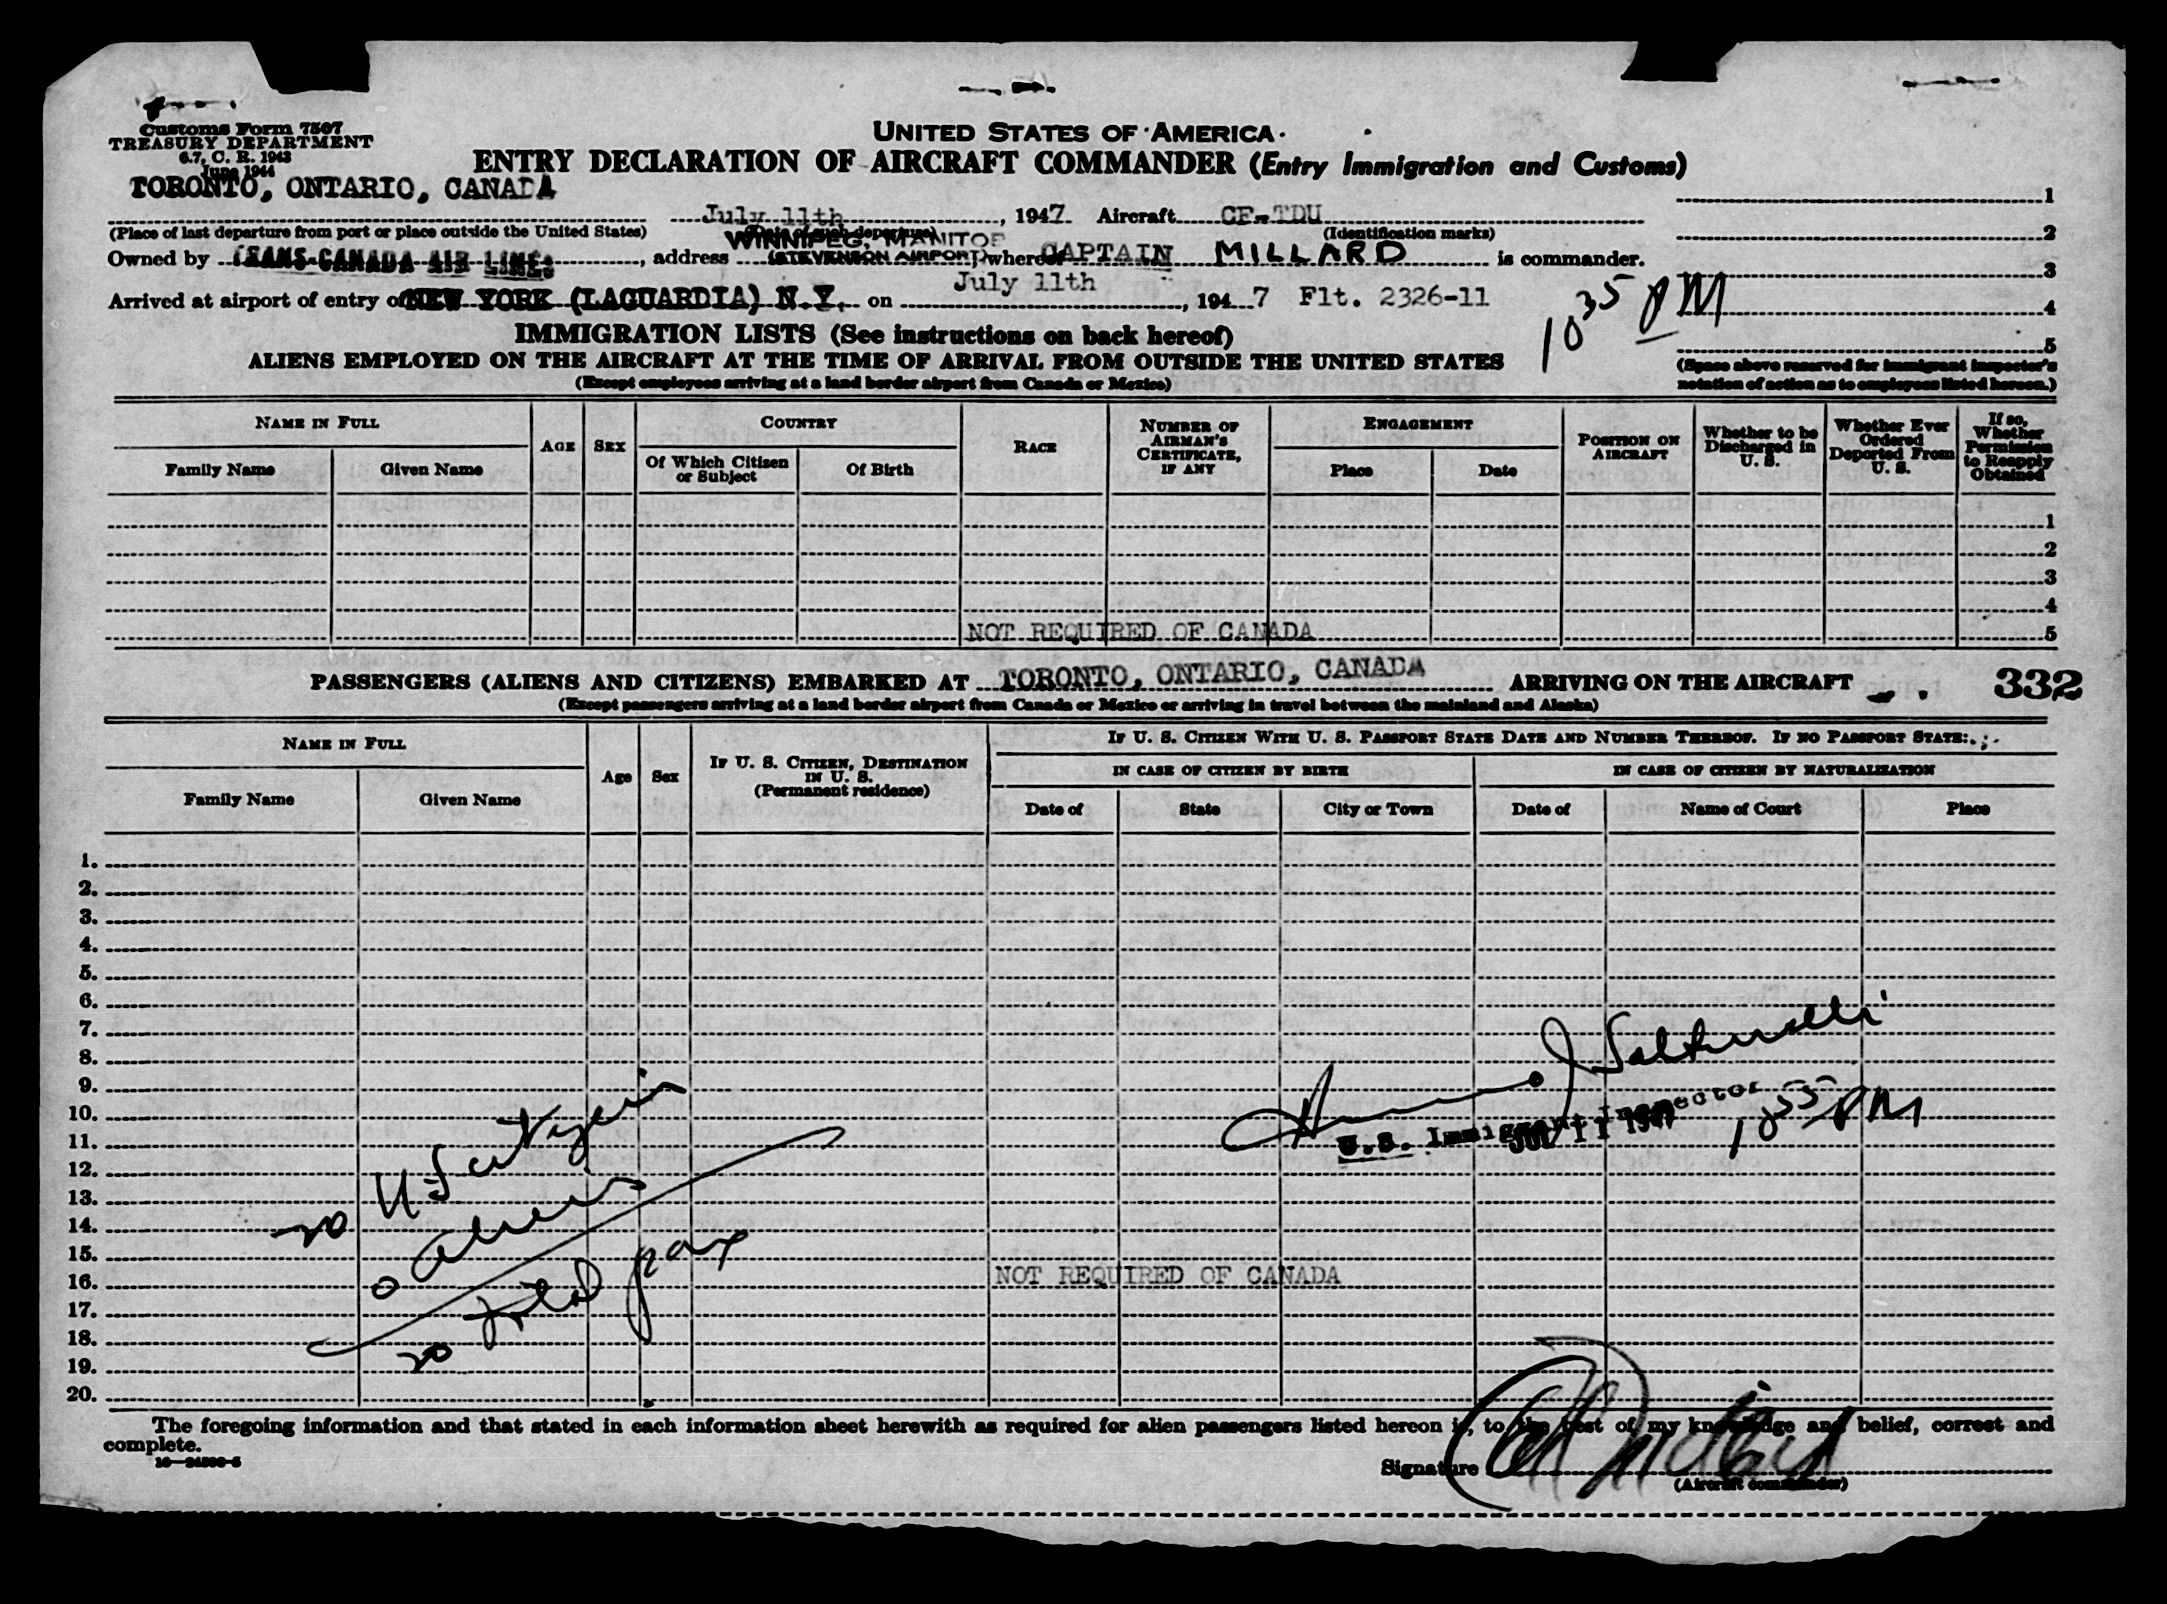 Customs Form 7507
TREASURY DEPARTMENT
6.7, C. R. 1943
June 1944
UNITED STATES OF AMERICA
ENTRY DECLARATION OF AIRCRAFT COMMANDER (Entry Immigration and Customs)
TORONTO, ONTARIO, CANADA
July 11th, 1947 Aircraft CF-TDU
(Place of last departure from port or place outside the United States) (Date of such departure) (Identification marks)
WINNIPEG, MANITOB
Owned by TRANS-CANADA AIR LINES, address (STEVENSON AIRPORT) whereof CAPTAIN MILLARD is commander.
Arrived at airport of entry of NEW YORK (LAGUARDIA) N.Y. on July 11th, 1947 Flt. 2326-11
10 35 PM
1
2
3
4
5
(Space above reserved for immigrant inspector's
notation of action as to employees listed hereon.)
IMMIGRATION LISTS (See instructions on back hereof)
ALIENS EMPLOYED ON THE AIRCRAFT AT THE TIME OF ARRIVAL FROM OUTSIDE THE UNITED STATES
(Except employees arriving at a land border airport from Canada or Mexico)
NAME IN FULL
Family Name Given Name
AGE SEX
COUNTRY
Of Which Citizen or Subject Of Birth
RACE
NUMBER OF AIRMAN'S CERTIFICATE, IF ANY
ENGAGEMENT
Place Date
POSITION ON AIRCRAFT
Whether to be Discharged in U. S.
Whether Ever Ordered Deported From U. S.
If so, Whether Permission to Reapply Obtained
1
2
3
4
NOT REQUIRED OF CANADA 5
PASSENGERS (ALIENS AND CITIZENS) EMBARKED AT TORONTO, ONTARIO, CANADA ARRIVING ON THE AIRCRAFT 332
(Except passengers arriving at a land border airport from Canada or Mexico or arriving in travel between the mainland and Alaska)
NAME IN FULL
Family Name Given Name
Age Sex
IF U. S. CITIZEN, DESTINATION IN U. S.
(Permanent residence)
IF U. S. CITIZEN WITH U. S. PASSPORT STATE DATE AND NUMBER THEREOF. IF NO PASSPORT STATE:
IN CASE OF CITIZEN BY BIRTH IN CASE OF CITIZEN BY NATURALIZATION
Date of State City or Town Date of Name of Court Place
1.
2.
3.
4.
5.
6.
7.
8.
9.
10.
11.
12.
13.
14.
15.
16.
17.
18.
19.
20.
U.S. Immigrant Inspector
JUL 11 1947
10 55 PM
20 U S citizens
0 aliens
20 total pax
NOT REQUIRED OF CANADA
The foregoing information and that stated in each information sheet herewith as required for alien passengers listed hereon is, to the best of my knowledge and belief, correct and
complete.
Signature
(Aircraft commander)